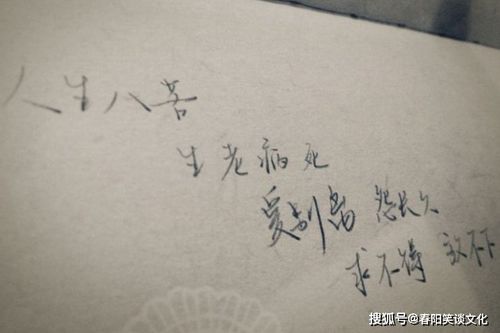 人生八苦
生老病死
爱别离 怨长久
求不得 放不下
搜狐号@春阳笑谈文化